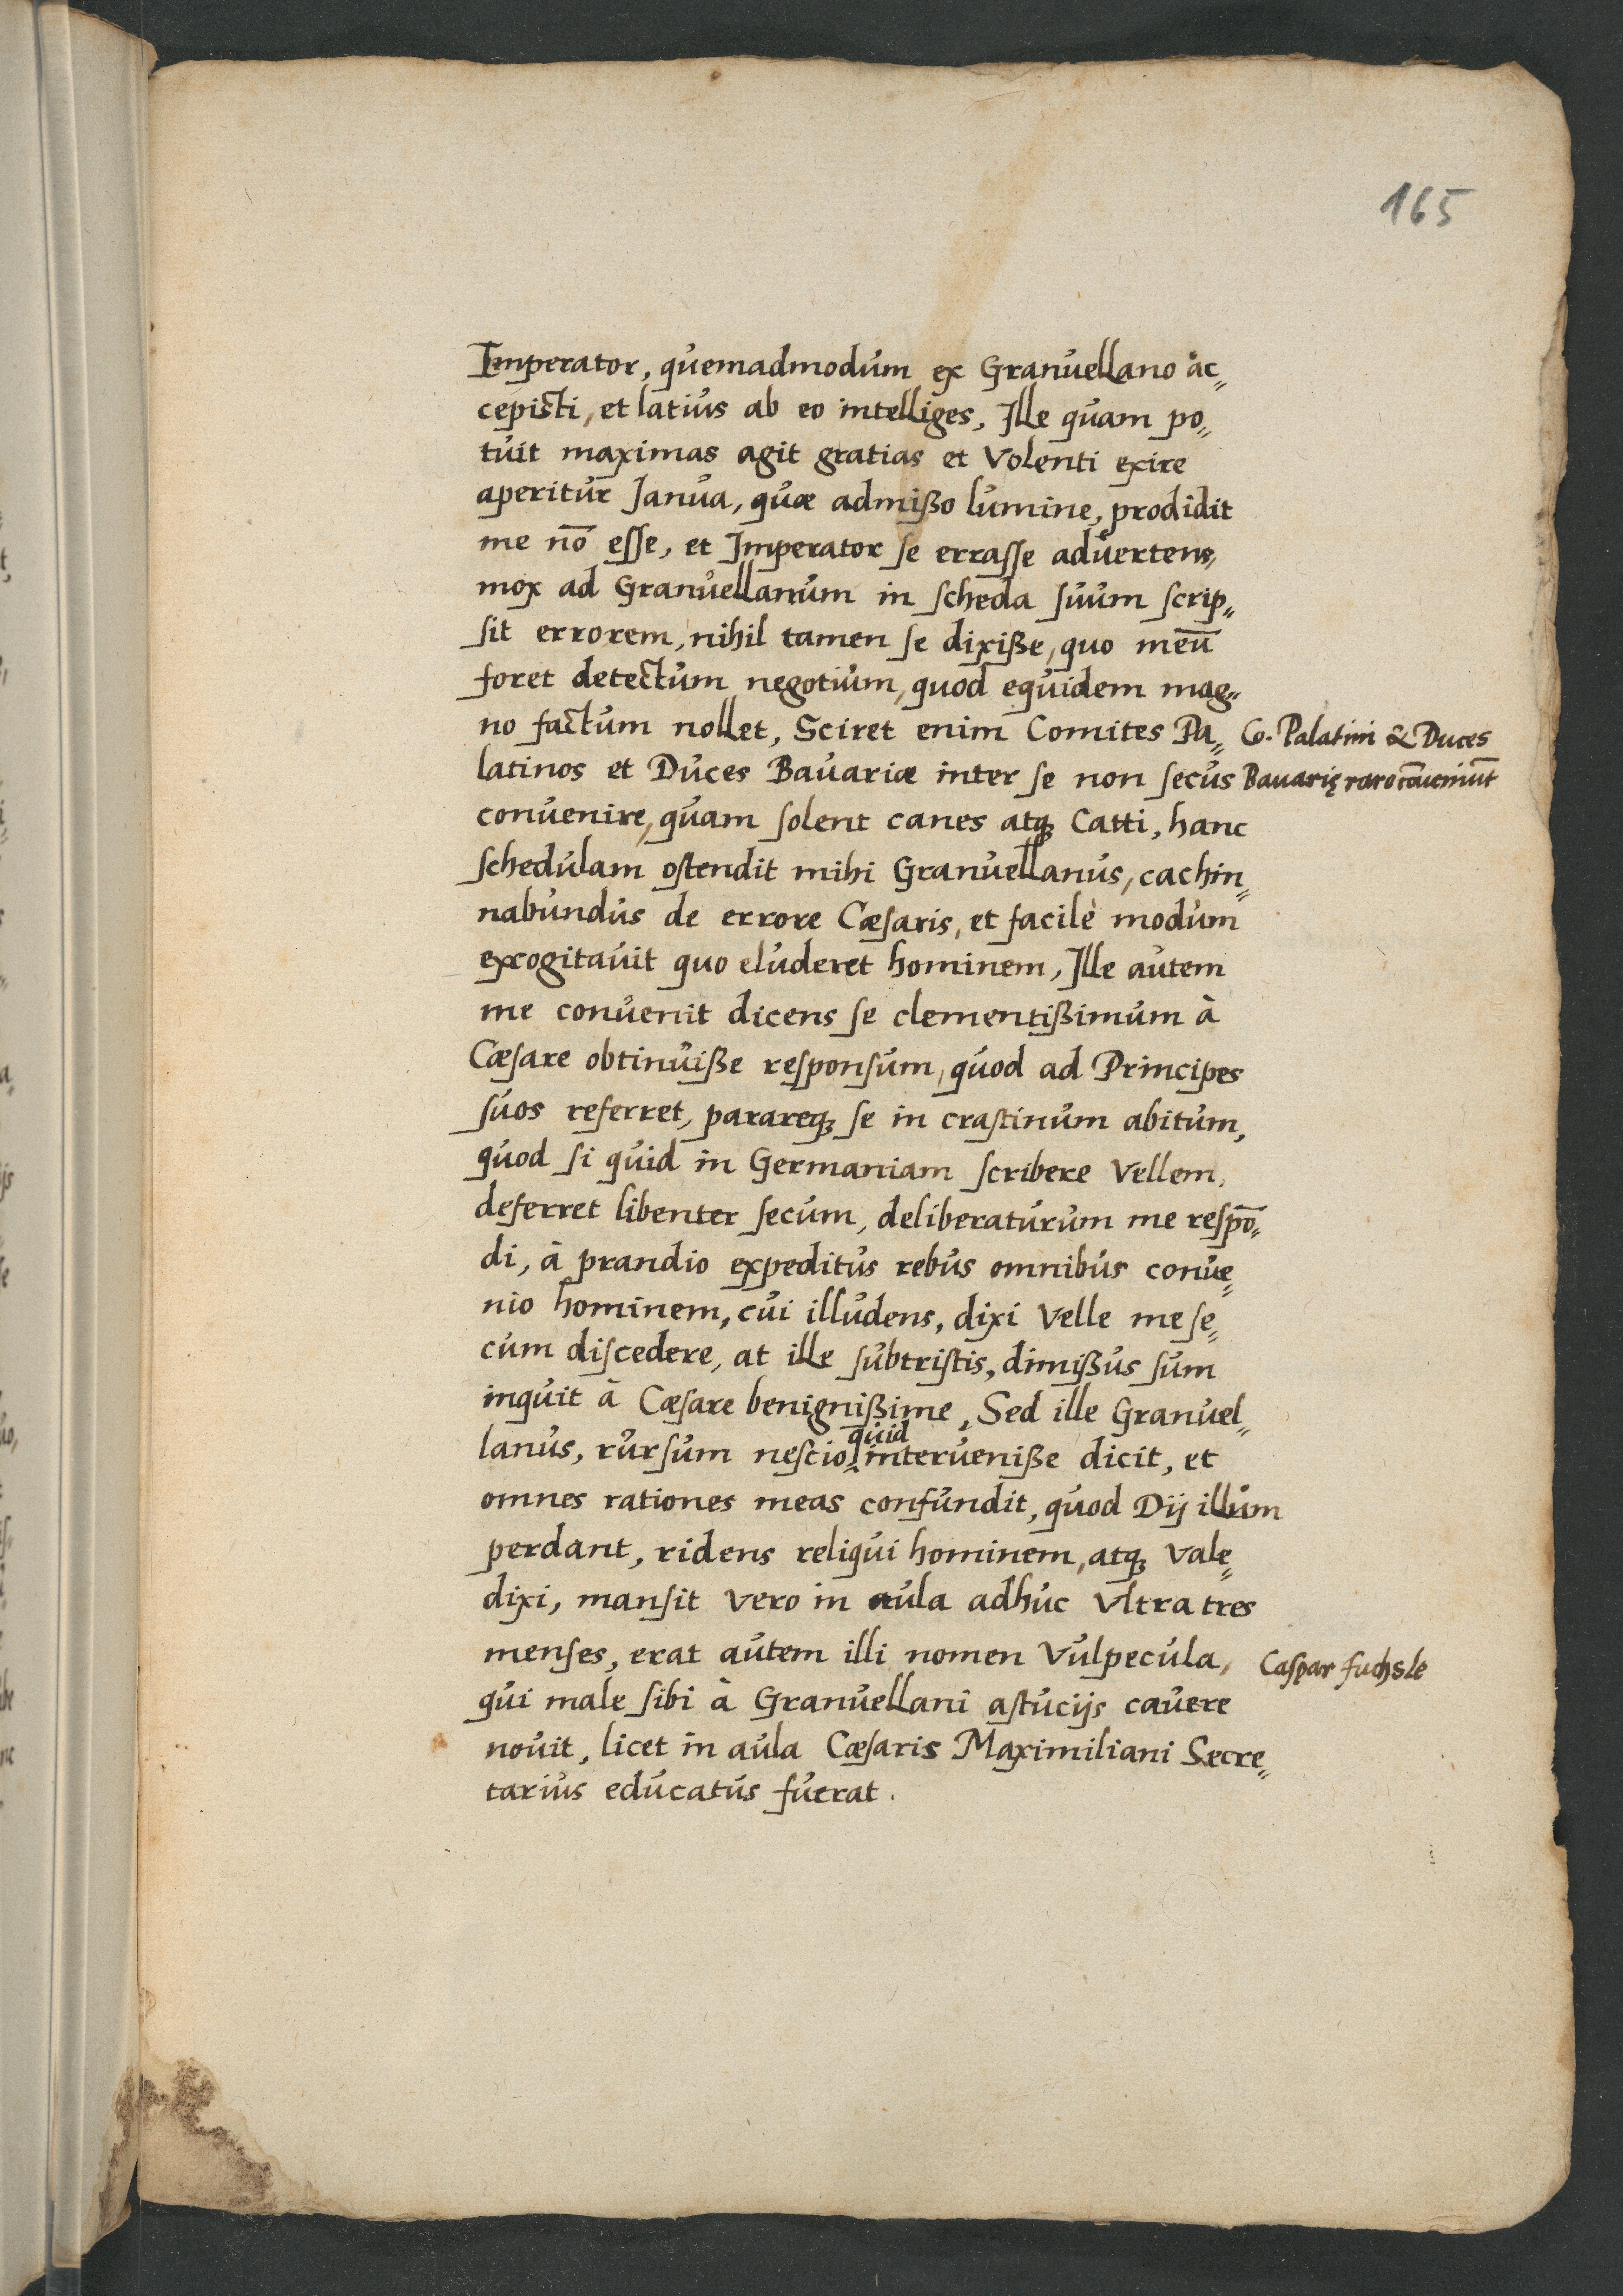 165
Imperator, quemadmodum ex Granuellano ac„
cepisti, et latius ab eo intelliges, Ille quam po„
tuit maximas agit gratias et Volenti exire
aperitur Janua, quæ admißo lumine, prodidit
me nō esse, et Imperator se errasse aduertens,
mox ad Granuellanum in scheda suum scrip„
sit errorem, nihil tamen se dixiße, quo meū
foret detectum negotium, quod equidem mag„
no factum nollet, Sciret enim Comites Pa„
Co. Palatini & Duces
latinos et Duces Bauariæ inter se non secus
Bauarię raro cōueniūt
conuenire, quam solent canes atq; Catti, hanc
schedulam ostendit mihi Granuellanus, cachin„
nabundus de errore Cæsaris, et facilè modum
excogitauit quo eluderet hominem, Ille autem
me conuenit dicens se clementißimum à
Cæsare obtinuiße responsum, quod ad Principes
suos referret, parareq; se in crastinum abitum,
quod si quid in Germaniam scribere Vellem,
deferret libenter secum, deliberaturum me respō„
di, à prandio expeditus rebus omnibus conue„
nio hominem, cui illudens, dixi Velle me se„
cum discedere, at ille subtristis, dimißus sum
inquit à Cæsare benignißime, Sed ille Granuel„
quid
lanus, rursum nescio interueniße dicit, et
omnes rationes meas confundit, quod Dij illum
perdant, ridens reliqui hominem, atq; Vale„
dixi, mansit Vero in aula adhuc Vltra tres
menses, erat autem illi nomen Vulpecula,
Caspar fuchsle
qui male sibi à Granuellani astucijs cauere
nouit, licet in aula Cæsaris Maximiliani Secre„
tarius educatus fuerat.